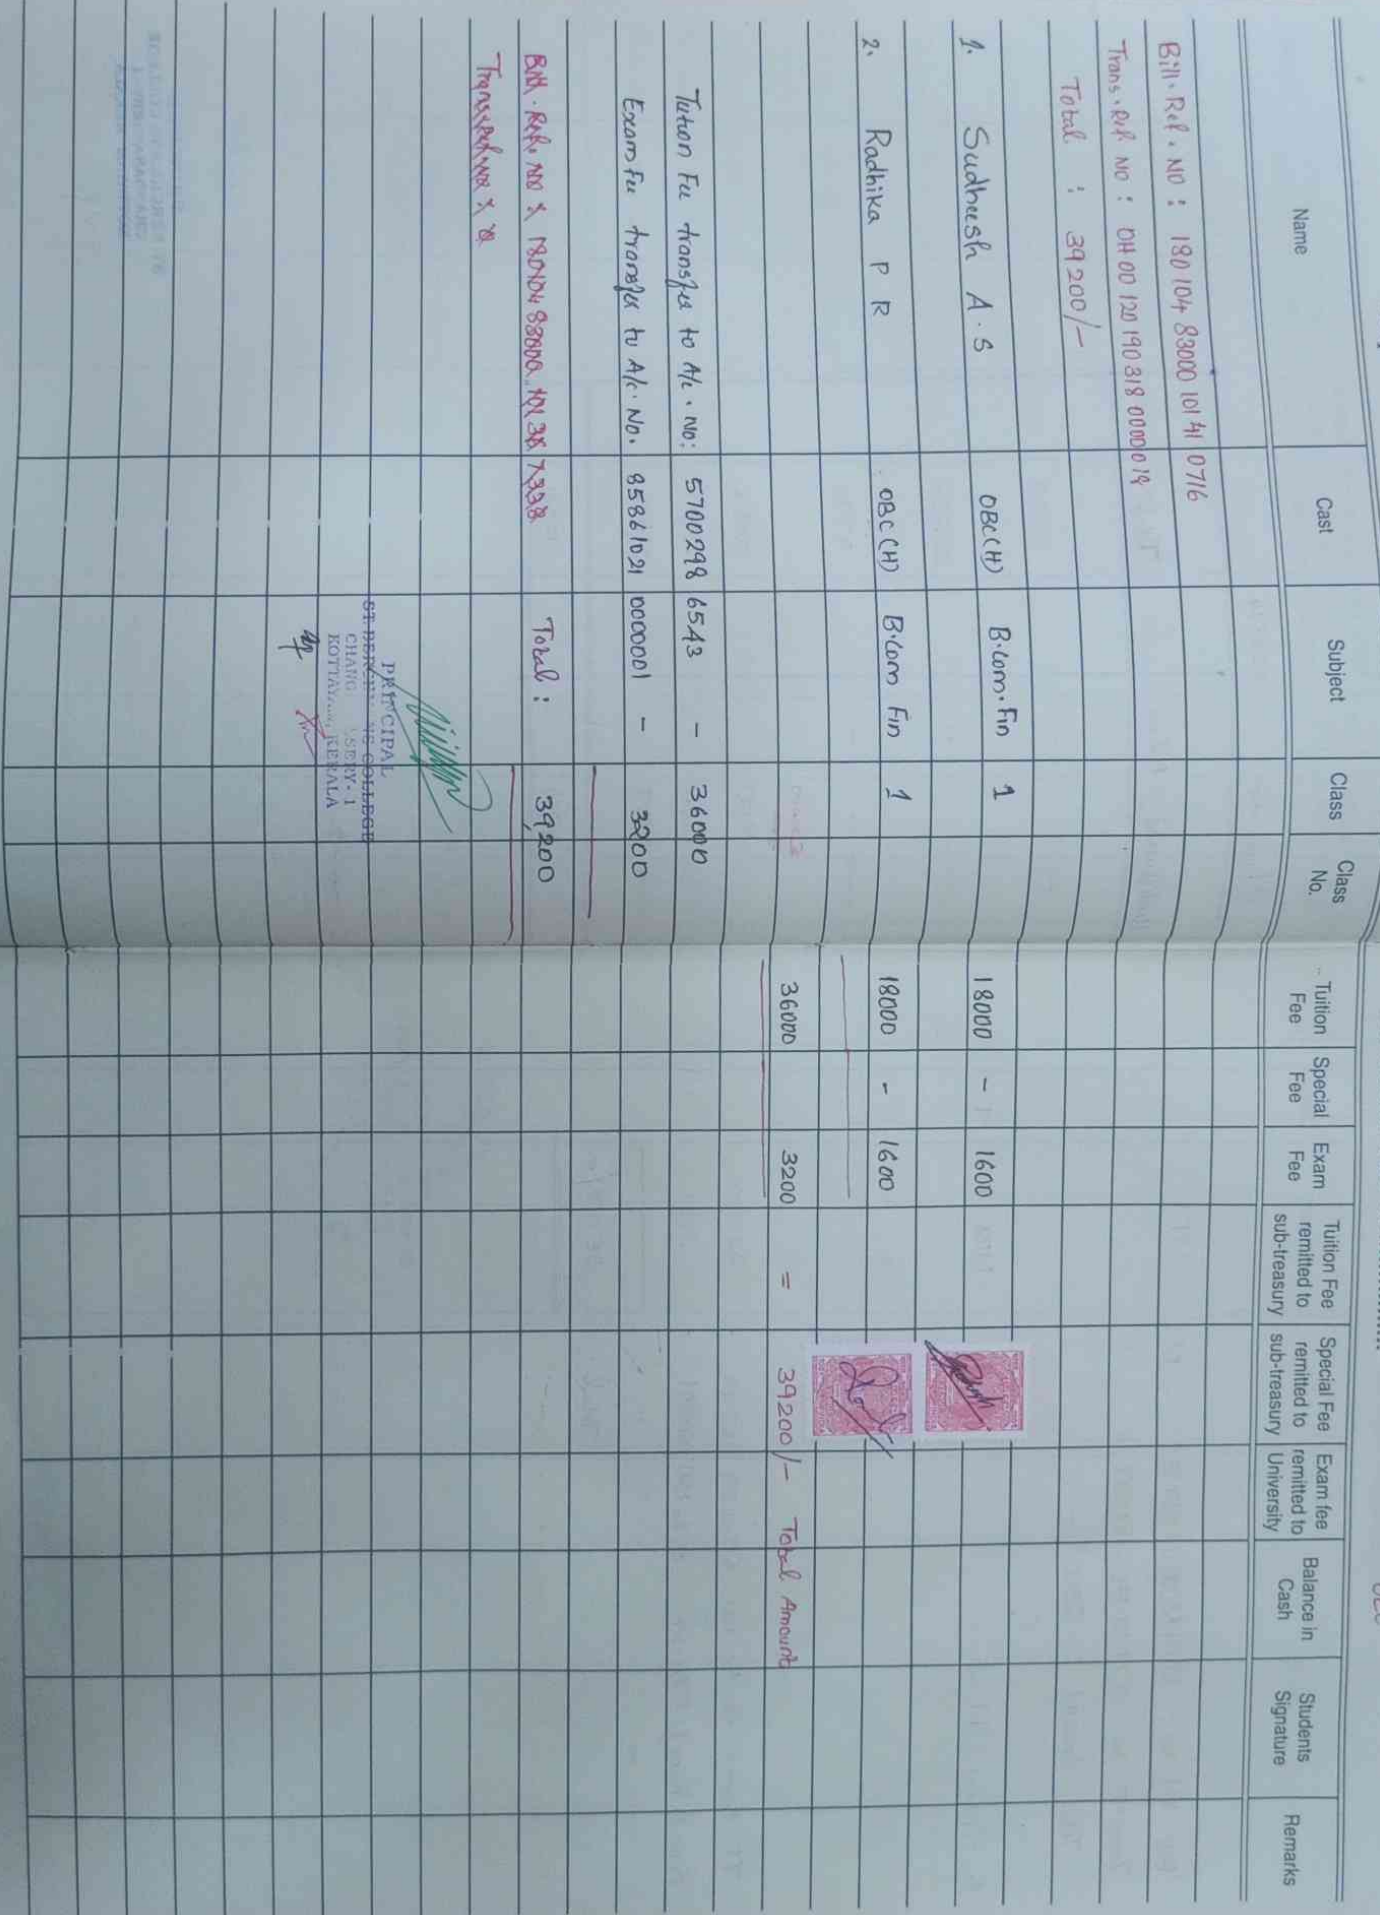 Name Cast Subject Class Class No. Tuition Fee Special Fee Exam Fee Tuition Fee remitted to sub-treasury Special Fee remitted to sub-treasury Exam fee remitted to University Balance in Cash Students Signature Remarks
Bill. Ref. NO : 180104 83000 10141 0716
Trans. Ref. NO : 0H00 120 190318 0000019
Total : 39200/-
1. Sudheesh A.S OBC(H) B.Com.Fin 1 18000 - 1600
2. Radhika P R OBC(H) B.Com Fin 1 18000 - 1600
36000 3200 = 39200/- Total Amount
Tution Fee transfer to A/c. No: 5700298 6543 - 36000
Exam Fee transfer to A/c. No. 85861021 0000001 - 3200
Total : 39,200
PRINCIPAL
COLLEGE
SERY-1
KERALA